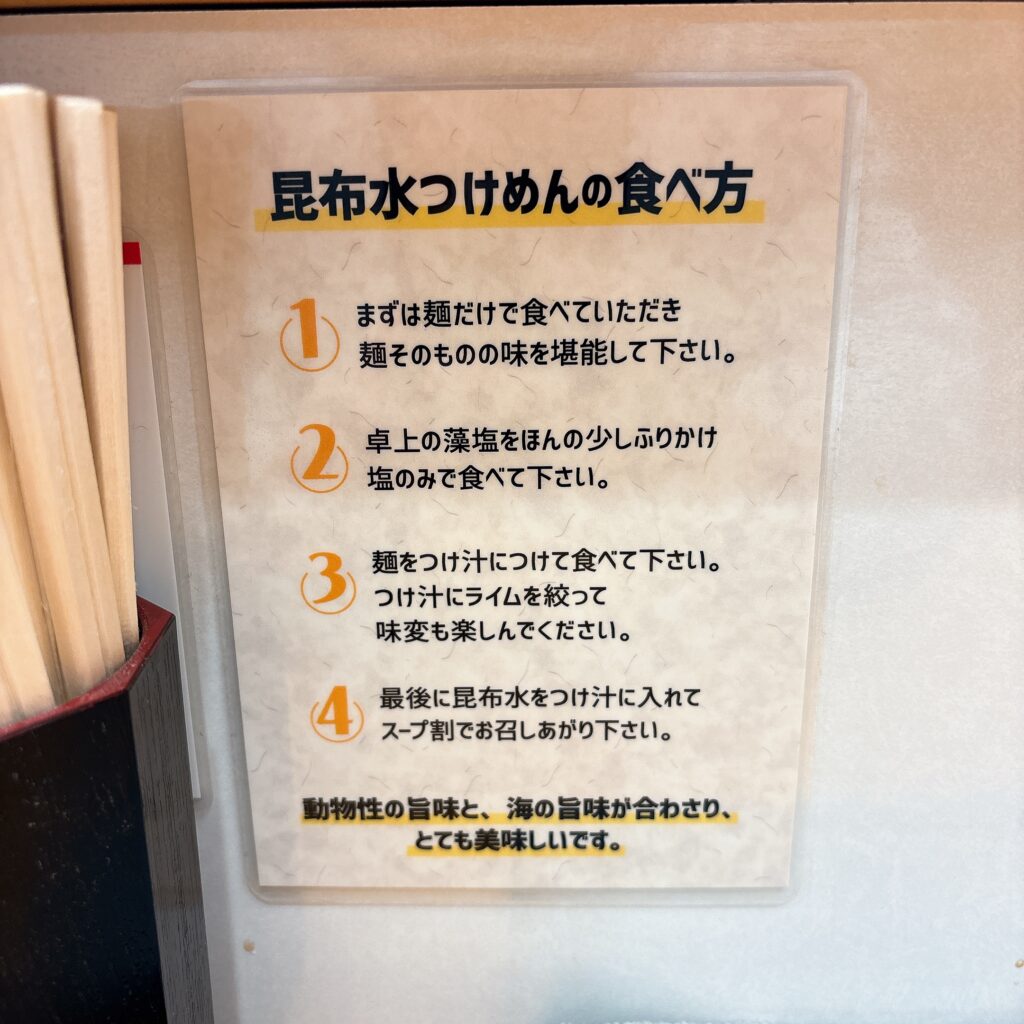 昆布水つけめんの食べ方
1 まずは麺だけで食べていただき
麺そのものの味を堪能して下さい。
2 卓上の藻塩をほんの少しふりかけ
塩のみで食べて下さい。
3 麺をつけ汁につけて食べて下さい。
つけ汁にライムを絞って
味変も楽しんでください。
4 最後に昆布水をつけ汁に入れて
スープ割でお召しあがり下さい。
動物性の旨味と、海の旨味が合わさり、
とても美味しいです。